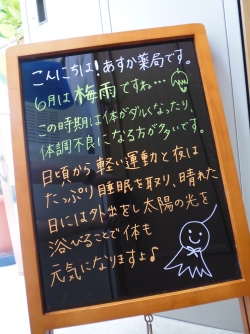 こんにちは!あすか薬局です。
6月は梅雨ですね…
この時期は体がダルくなったり、
体調不良になる方が多いです。
日頃から軽い運動と夜は
たっぷり睡眠を取り、晴れた
日には外出をし太陽の光を
浴びることで体も
元気になりますよ♪